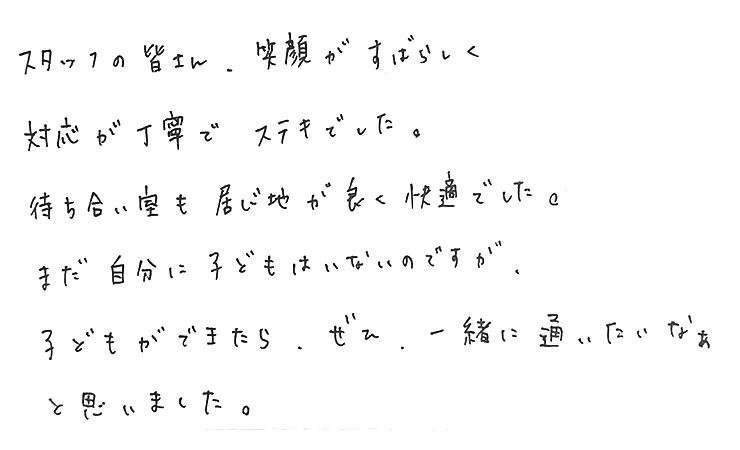 スタッフの皆さん、笑顔がすばらしく
対応が丁寧で ステキでした。
待ち合い室も 居心地が良く快適でした。
まだ 自分に子どもはいないのですが、
子どもができたら、ぜひ、一緒に通いたいなぁ
と思いました。